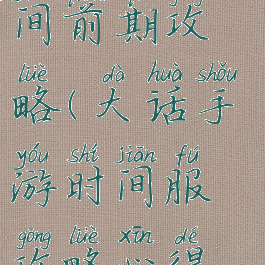 间前期攻
lüè dà huà shǒu
略(大话手
yóu shí jiān fú
游时间服
gōng lüè xīn dé
攻略心得